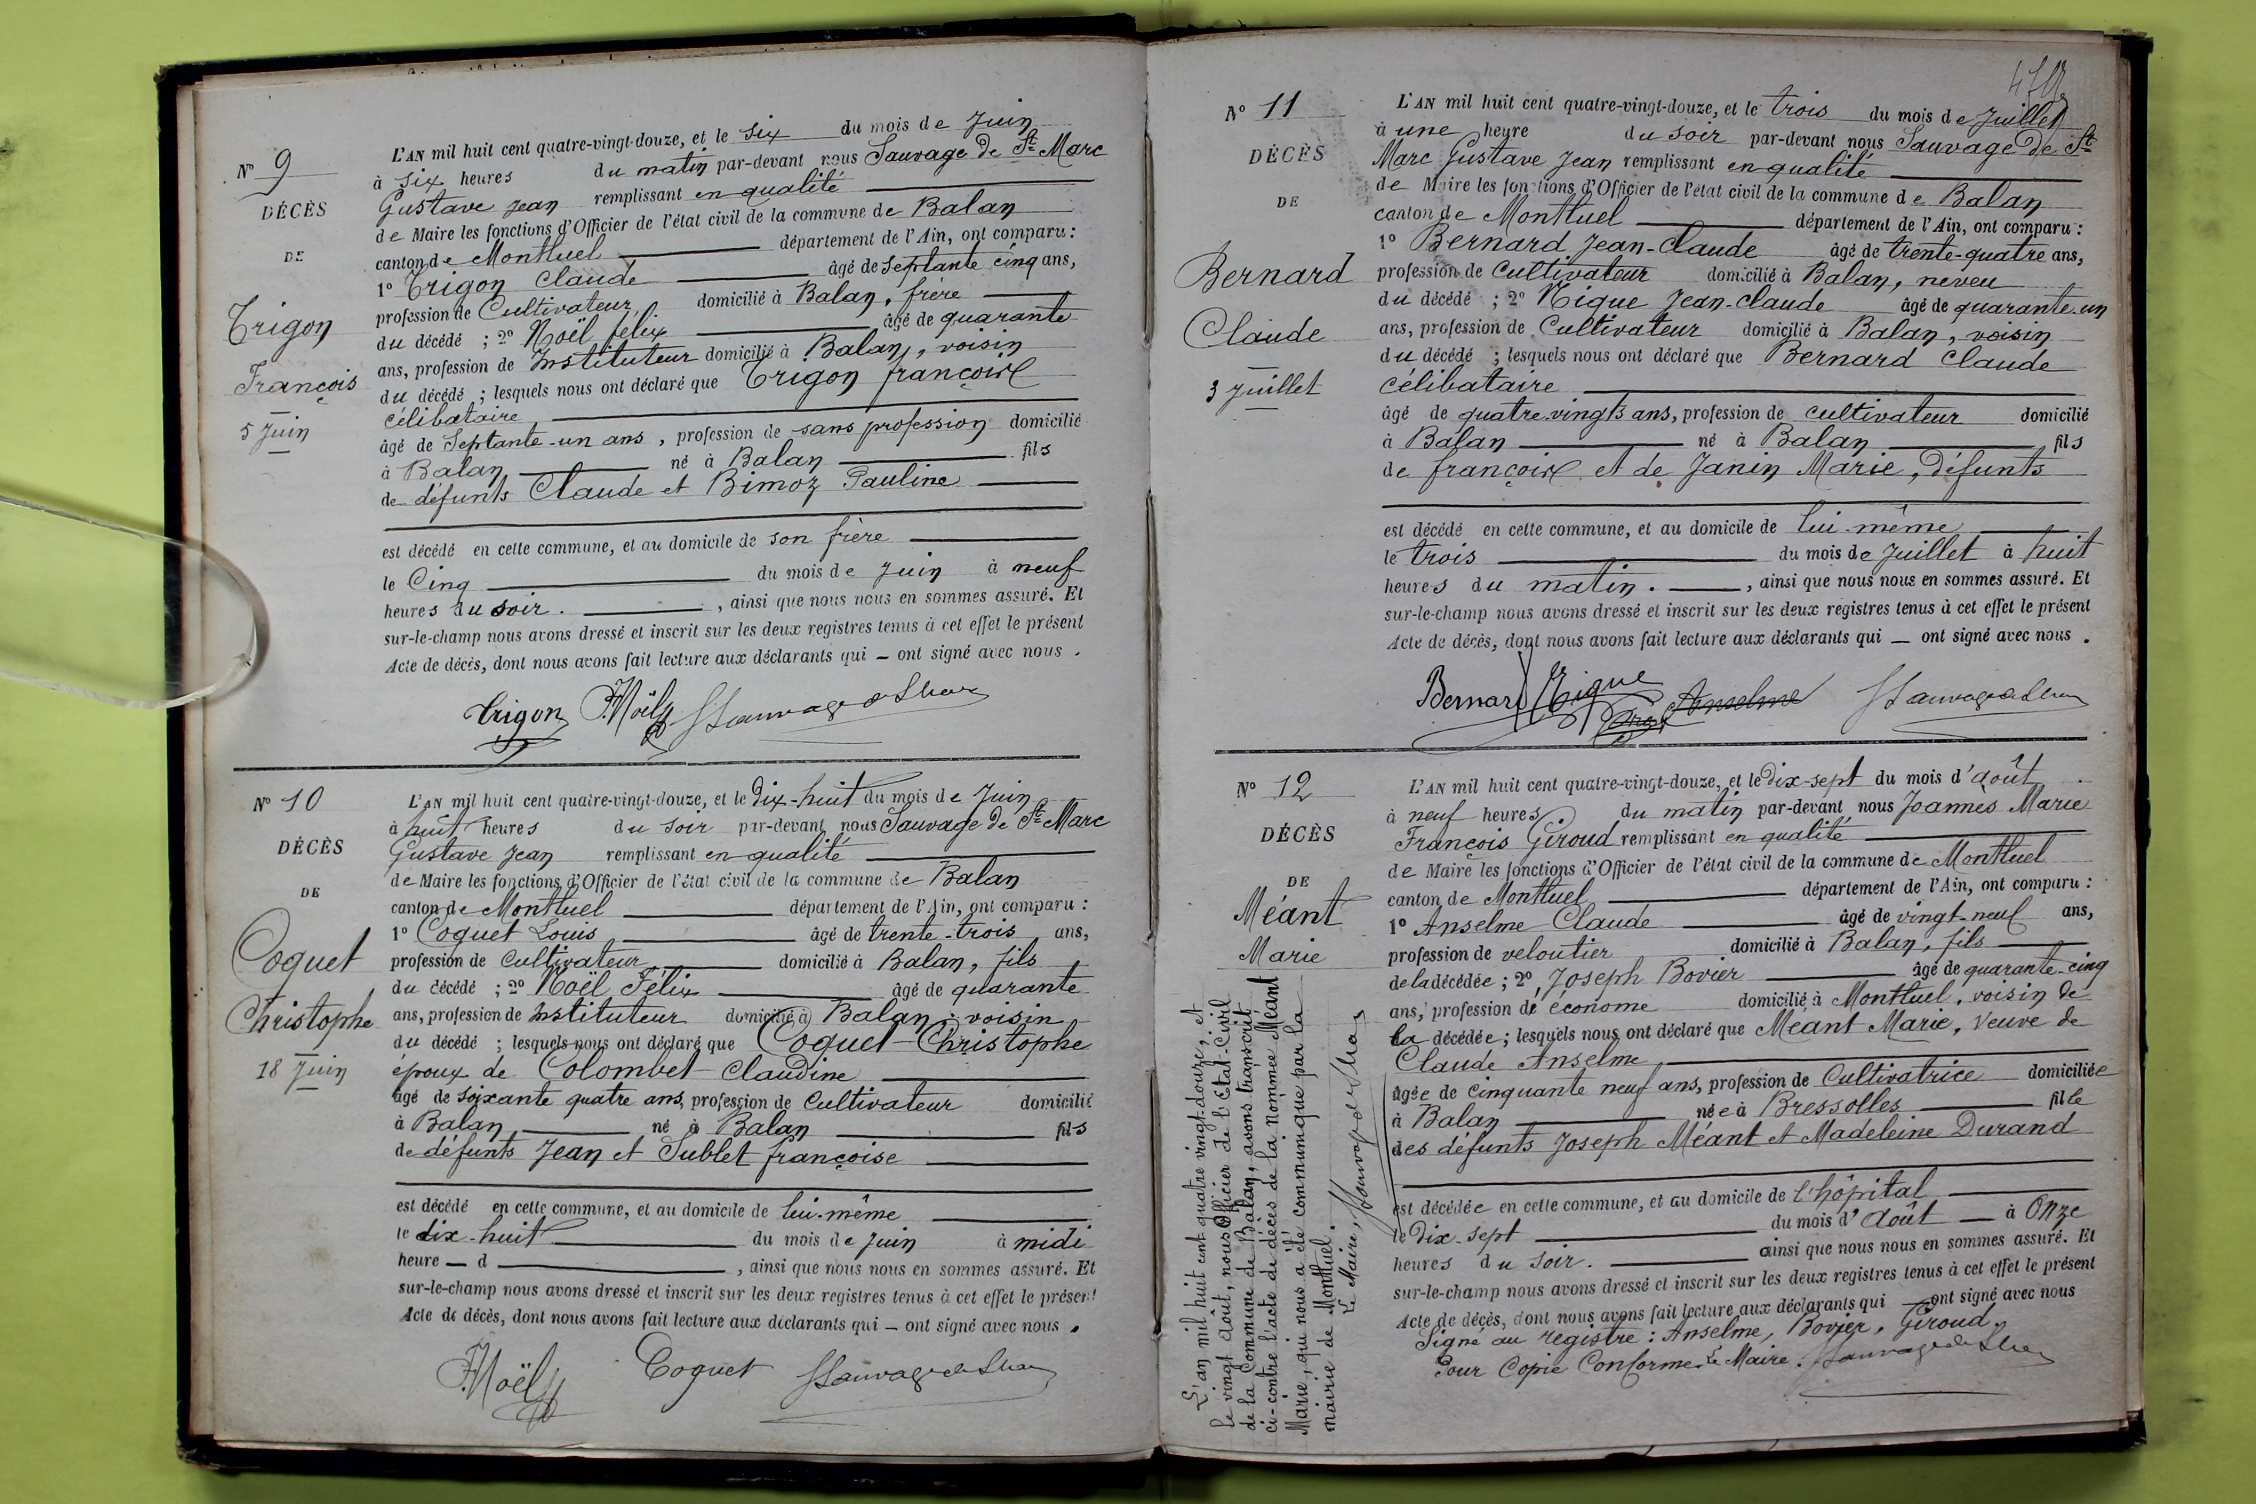 N° 9
DÉCÈS
DE
Trigon
François
5 Juin
L'AN mil huit cent quatre-vingt-douze, et le six du mois de Juin
à six heures du matin par-devant nous Sauvage de St Marc
Gustave Jean remplissant en qualité
de Maire les fonctions d'Officier de l'état civil de la commune de Balan
canton de Montluel département de l'Ain, ont comparu :
1° Trigon Claude âgé de septante cinq ans,
profession de Cultivateur, domicilié à Balan, frère
du décédé ; 2° Noël félix âgé de quarante
ans, profession de Instituteur domicilié à Balan, voisin
du décédé ; lesquels nous ont déclaré que Trigon françois
célibataire
âgé de Septante-un ans, profession de sans profession domicilié
à Balan né à Balan fils
de défunts Claude et Bimoz Pauline
est décédé en cette commune, et au domicile de son frère
le Cinq du mois de Juin à neuf
heures du soir. , ainsi que nous nous en sommes assuré. Et
sur-le-champ nous avons dressé et inscrit sur les deux registres tenus à cet effet le présent
Acte de décès, dont nous avons fait lecture aux déclarants qui – ont signé avec nous .
Trigon F. Noël
N° 10
DÉCÈS
DE
Coquet
Christophe
18 Juin
L'AN mil huit cent quatre-vingt-douze, et le Dix-huit du mois de Juin
à huit heures du soir par-devant nous Sauvage de St Marc
Gustave Jean remplissant en qualité
de Maire les fonctions d'Officier de l'état civil de la commune de Balan
canton de Montluel département de l'Ain, ont comparu :
1° Coquet Louis âgé de trente-trois ans,
profession de cultivateur domicilié à Balan, fils
du décédé ; 2° Noël Félix âgé de quarante
ans, profession de Instituteur domicilié à Balan, voisin
du décédé ; lesquels nous ont déclaré que Coquet Christophe
époux de Colombet Claudine
âgé de soixante quatre ans, profession de cultivateur domicilié
à Balan né à Balan fils
de défunts Jean et Sublet françoise
est décédé en cette commune, et au domicile de lui-même
le dix-huit du mois de Juin à midi
heure – d , ainsi que nous nous en sommes assuré. Et
sur-le-champ nous avons dressé et inscrit sur les deux registres tenus à cet effet le présent
Acte de décès, dont nous avons fait lecture aux déclarants qui – ont signé avec nous .
F. Noël Coquet
N° 11
DÉCÈS
DE
Bernard
Claude
3 Juillet
L'AN mil huit cent quatre-vingt-douze, et le trois du mois de Juillet
à une heure du soir par-devant nous Sauvage de St
Marc Gustave Jean remplissant en qualité
de Maire les fonctions d'Officier de l'état civil de la commune de Balan
canton de Montluel département de l'Ain, ont comparu :
1° Bernard Jean-Claude âgé de trente-quatre ans,
profession de cultivateur domicilié à Balan, neveu
du décédé ; 2° Nique Jean-claude âgé de quarante-un
ans, profession de Cultivateur domicilié à Balan, voisin
du décédé ; lesquels nous ont déclaré que Bernard Claude
célibataire
âgé de quatre-vingts ans, profession de cultivateur domicilié
à Balan né à Balan fils
de françois et de Janin Marie, défunts
est décédé en cette commune, et au domicile de lui-même
le trois du mois de Juillet à huit
heures du matin. , ainsi que nous nous en sommes assuré. Et
sur-le-champ nous avons dressé et inscrit sur les deux registres tenus à cet effet le présent
Acte de décès, dont nous avons fait lecture aux déclarants qui – ont signé avec nous .
Bernard Nique Anselme
N° 12
DÉCÈS
DE
Méant
Marie
L'AN mil huit cent quatre-vingt-douze, et le Dix-sept du mois d'août
à neuf heures du matin par-devant nous Joannès Marie
François Giroud remplissant en qualité
de Maire les fonctions d'Officier de l'état civil de la commune de Montluel
canton de Montluel département de l'Ain, ont comparu :
1° Anselme Claude âgé de vingt-neuf ans,
profession de veloutier domicilié à Balan, fils
de la décédée ; 2°, Joseph Bovier âgé de quarante-cinq
ans, profession de économe domicilié à Montluel, voisin de
la décédée ; lesquels nous ont déclaré que Méant Marie, Veuve de
Claude Anselme
âgée de cinquante neuf ans, profession de Cultivatrice domiciliée
à Balan née à Bressolles fille
des défunts Joseph Méant et Madeleine Durand
est décédée en cette commune, et au domicile de l'hôpital
le Dix-sept du mois d'Août – à Onze
heures du soir. ainsi que nous nous en sommes assuré. Et
sur-le-champ nous avons dressé et inscrit sur les deux registres tenus à cet effet le présent
Acte de décès, dont nous avons fait lecture aux déclarants qui – ont signé avec nous
Signé au registre : Anselme, Bovier, Giroud.
Pour Copie Conforme. Le Maire.
L'an mil huit cent quatre vingt-douze, et
le vingt Août, nous Officier de l'Etat-Civil
de la Commune de Balan, avons transcrit
ci-contre l'acte de décès de la nommée Méant
Marie, qui nous a été communiqué par la
mairie de Montluel.
Le Maire,